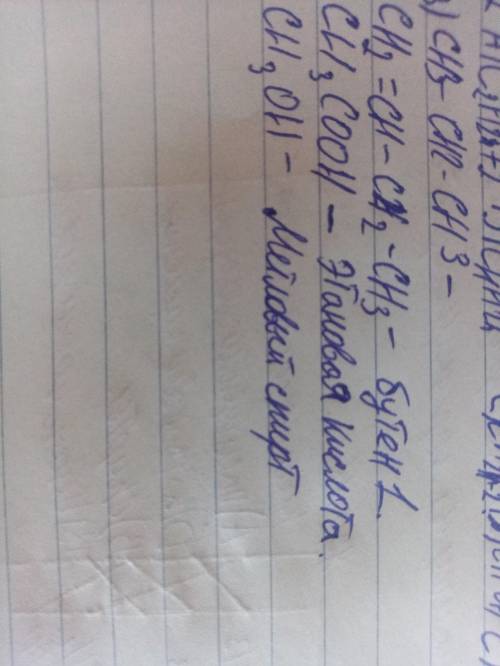 CH3-CH2-CH3 -
CH2=CH-CH2-CH3 - Бутен 1.
CH3COOH - Этановая кислота.
CH3OH - Метиловый спирт